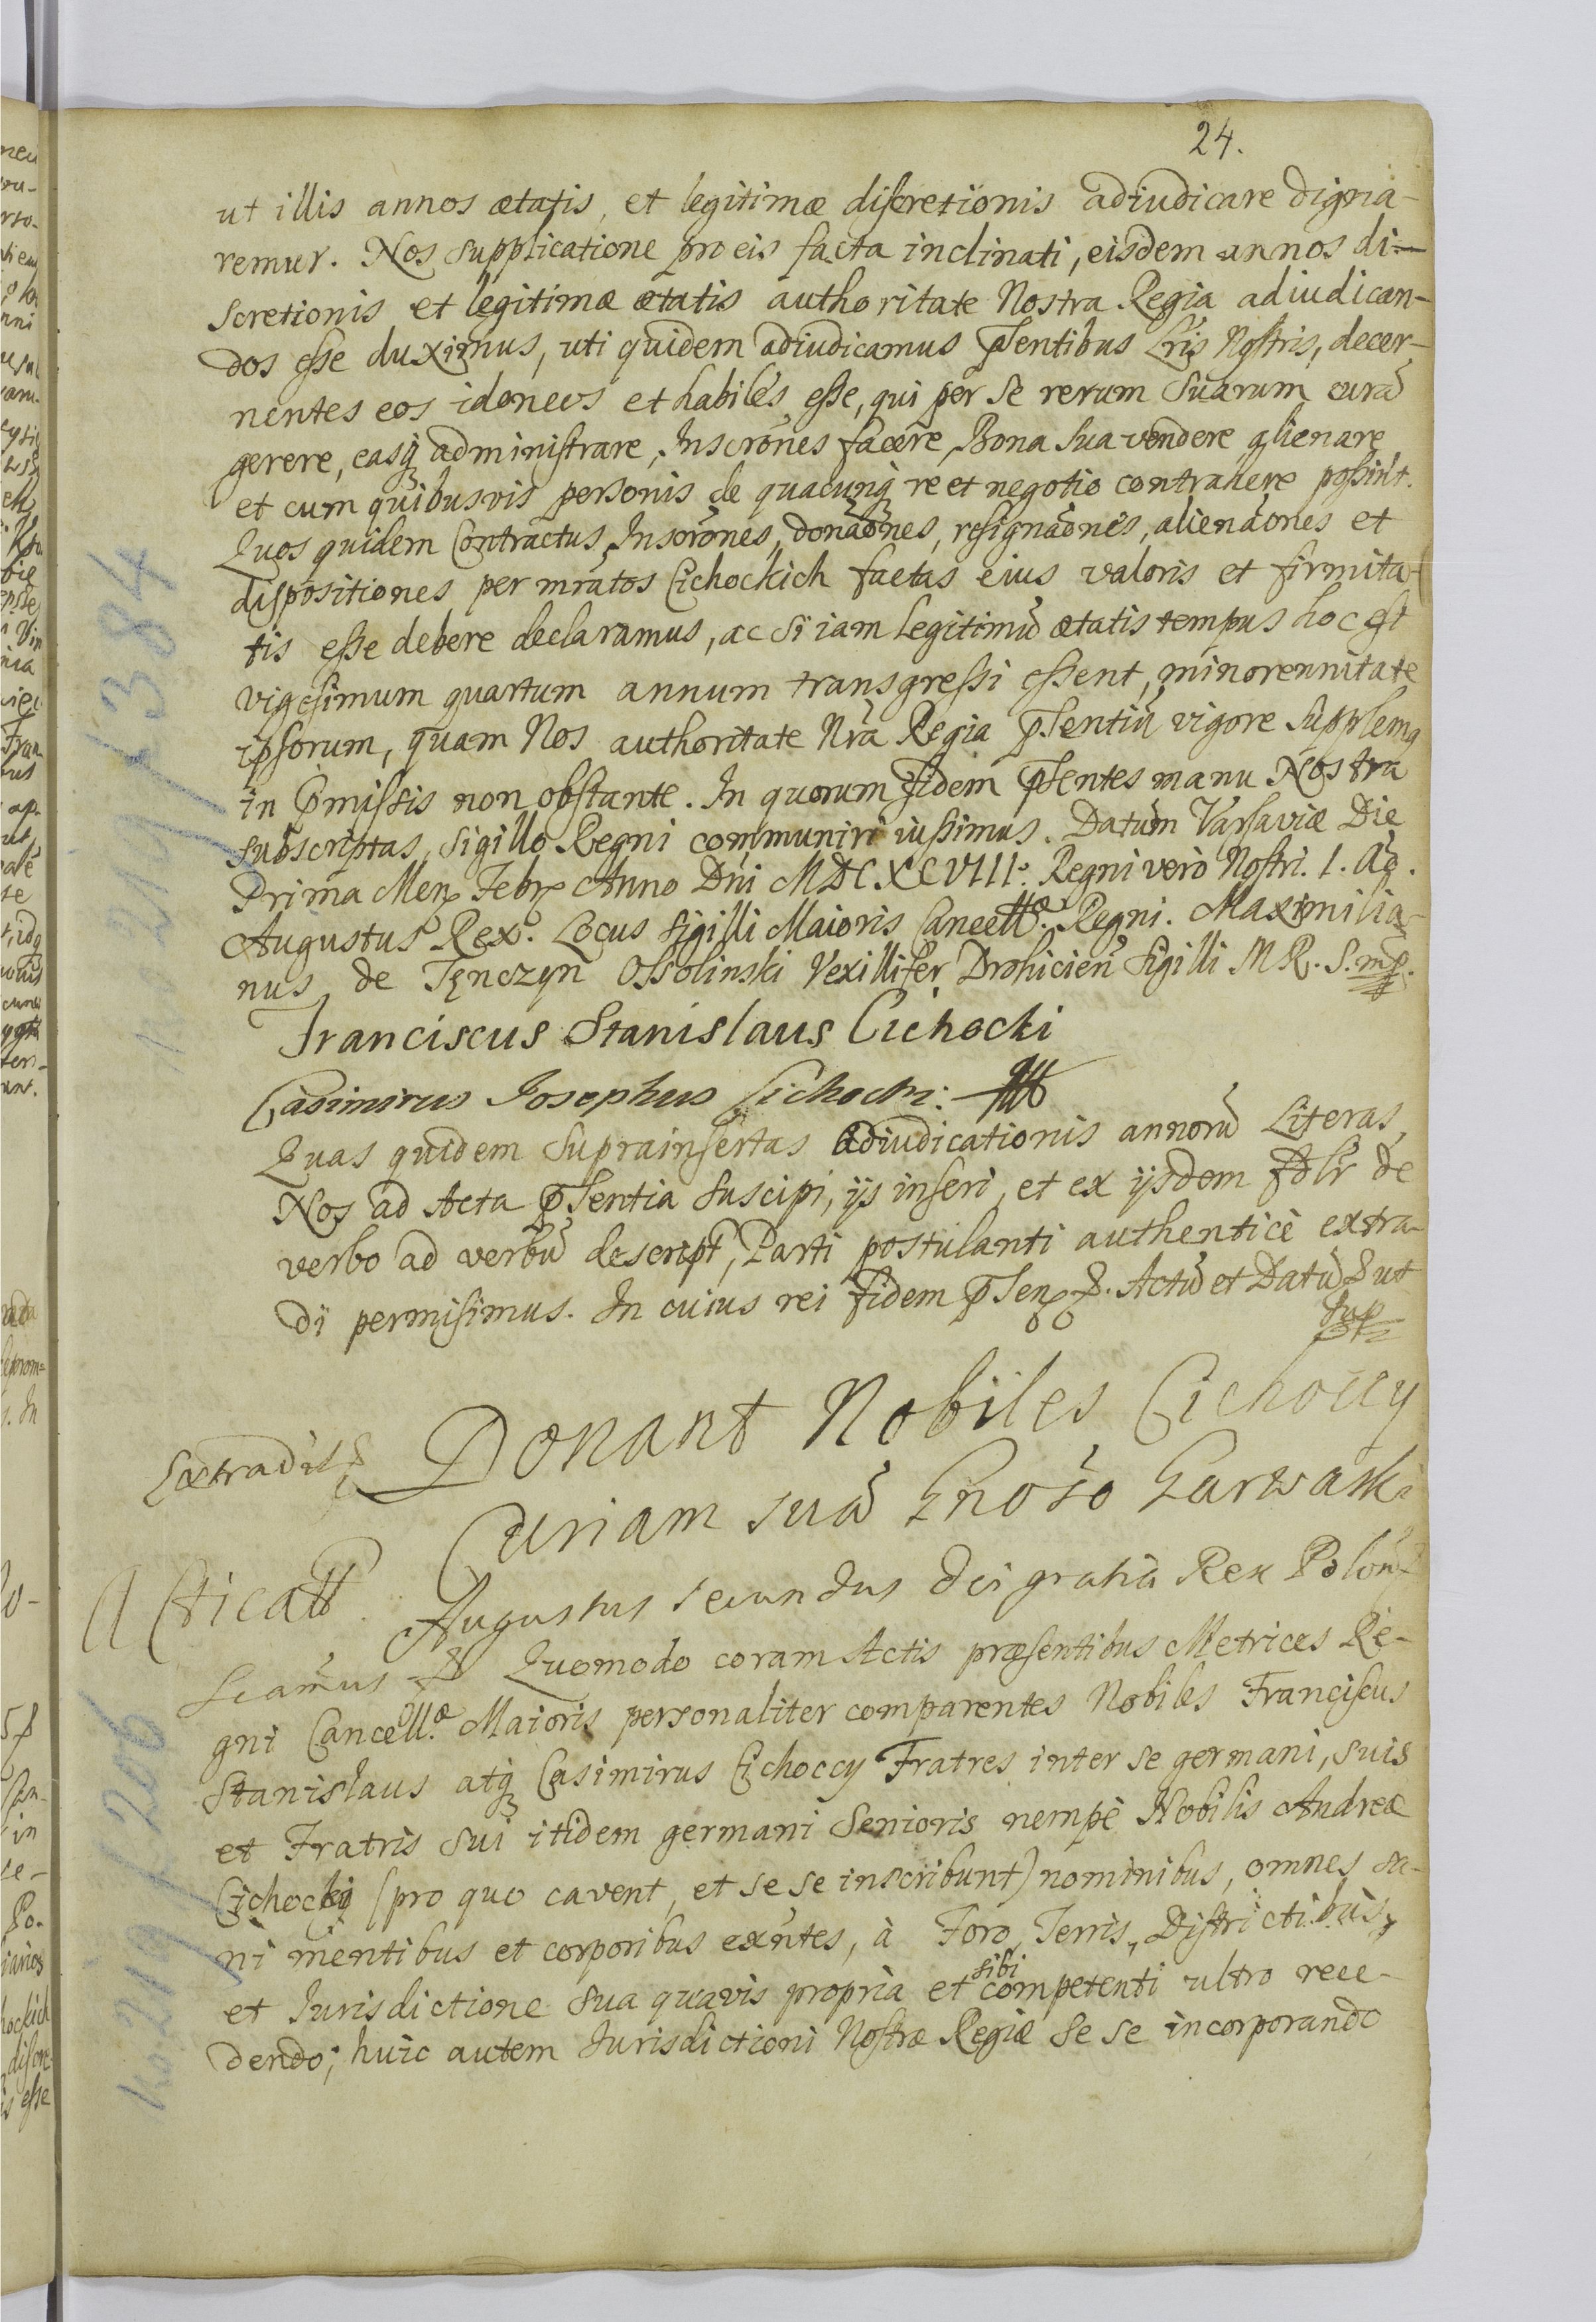 24.
ut illis annos ætatis, et legitimæ discretionis adiudicare digna-
remur. Nos supplicatione pro eis facta inclinati, eisdem annos di-
scretionis et legitimæ ætatis authoritate Nostra Regia adiudican-
dos esse duximus, uti quidem adiudicamus pñtibus Lris Nostris, decer-
nentes eos idoneos et habiles esse, qui per se rerum suarum curã
gerere, easq; administrare, Inscrõnes facere, Bona sua vendere, alienare
et cum quibusvis personis de quacunq; re et negotio contrahere possint.
Quos quidem Contractus, Inscrõnes, donaõnes, resignaõnes, alienãones et
dispositiones per mrãtos Cichockich factas eius valoris et firmita-
tis esse debere declaramus, ac si iam legitimũ ætatis tempus hoc est
vigesimum quartum annum transgressi essent, minorennitate
ipsorum, quam Nos authoritate Nrã Regia pſentiũ vigore supplemq
in pmissis non obstante. In quorum fidem pſentes manu Nostra
subscriptas, Sigillo Regni communiri iussimus. Datum Varsaviæ Die
Prima Men Febr Anno Dñi MDCXCVIII. Regni vero Nostri. 1. Aõ.
Augustus Rex. Locus Sigilli Maioris Cancellæ. Regni. Maximilia-
nus de Tęnczyn Ossolinski Vexillifer Drohicień Sigilli M R. S. mp.
Franciscus Stanislaus Cichocki
Casimirus Josephus Cichocki:
Quas quidem suprainsertas Adiudicationis annorũ Literas,
Nos ad Acta pſentia suscipi, ijs inseri, et ex ijsdem fdlr de
verbo ad verbũ descript, Parti postulanti authenticè extra-
di permisimus. In cuius rei fidem pſen &. Actũ et Datũ & ut
sup
Extradit
Donant Nobiles Cichoccy
Curiam suã Gnõso Garwaski
Acticatt
Augustus secundus Dei gratia Rex Polon
Scamus & Quomodo coram Actis præsentibus Metrices Re-
gni Cancellæ. Maioris personaliter comparentes Nobiles Franciscus
Stanislaus atq; Casimirus Cichoccy Fratres inter se germani, suis
et Fratris sui itidem germani Senioris nempè Nobilis Andreæ
Cichocki (pro quo cavent, et se se inscribunt) nominibus, omnes sa-
ni mentibus et corporibus exñtes, à Foro, Terris, Districtibus,
et Jurisdictione sua quavis propria et sibi competenti ultro rece-
dendo; huic autem Jurisdictioni Nostræ Regiæ se se incorporando